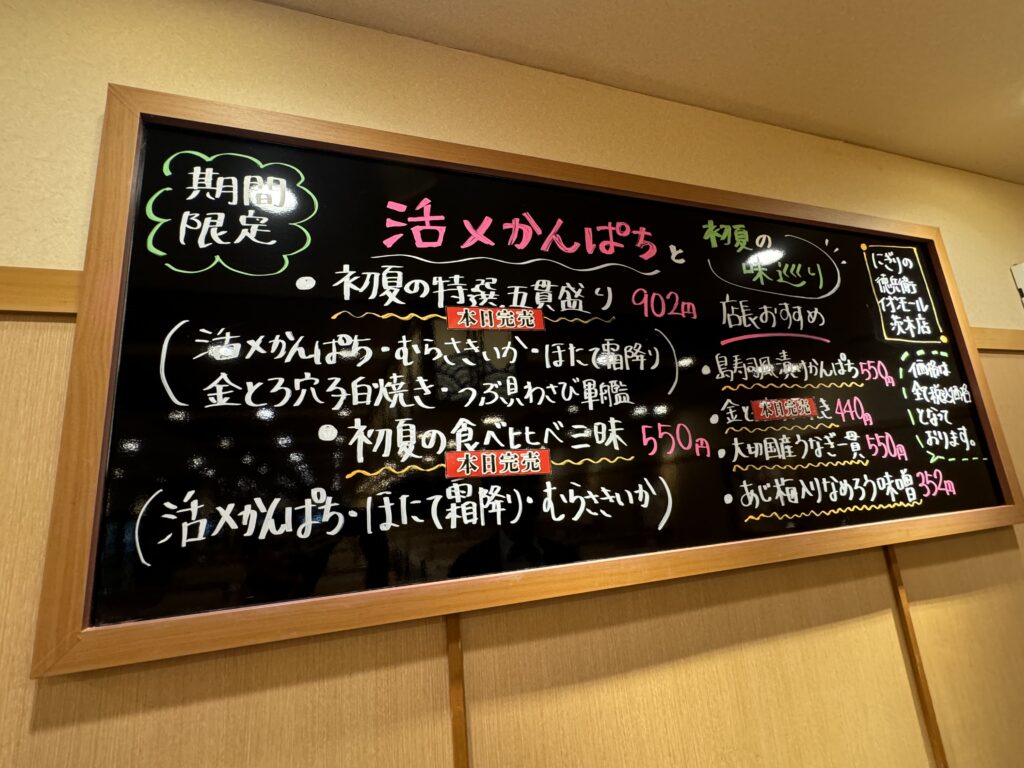 期間
限定
活〆かんぱちと
初夏の
味巡り
・初夏の特選五貫盛り 902円
本日完売
(活〆かんぱち・むらさきいか・ほたて霜降り
金とろ穴子白焼き・つぶ貝わさび軍艦)
・初夏の食べ比べ三昧 550円
本日完売
(活〆かんぱち・ほたて霜降り・むらさきいか)
店長おすすめ
・島寿司風漬けかんぱち550円
・金と本日完売き440円
・大切国産うなぎ一貫550円
・あじ梅入りなめろう味噌352円
にぎりの
徳兵衛
イオモール
赤本店
価格は
全て税込価格
となって
おります。